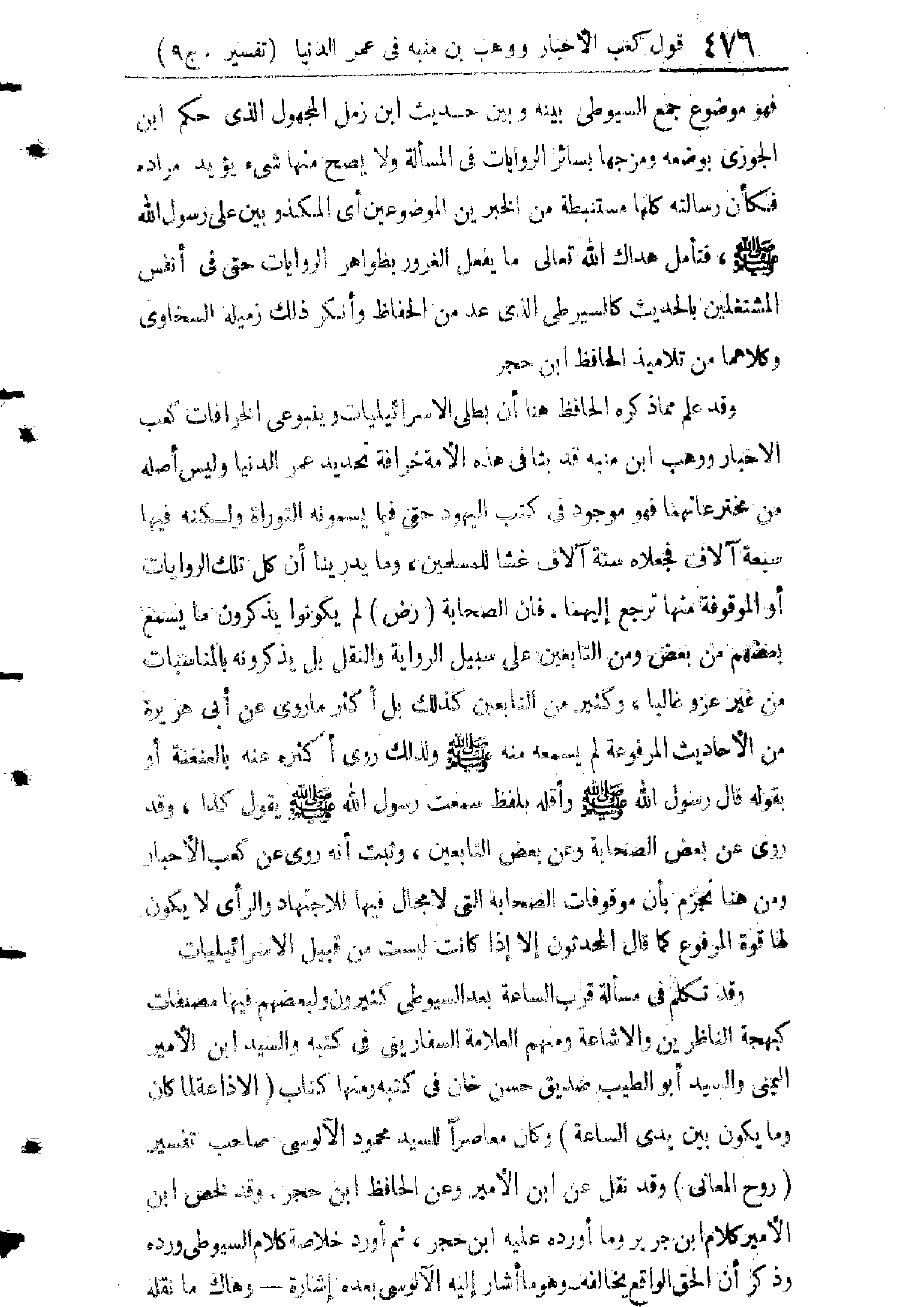 ٤٧٦ قول كعب الأحبار ووهب بن منبه فى عمر الدنيا (تفسير . ج٩)
فهو موضوع جمع السيوطى بينه وبين حديث ابن زمل المجهول الذى حكم ابن
الجوزى بوضعه ومزجها بسائر الروايات فى المسألة ولا يصح منها شىء يؤيد مراده
فكأن رسالته كلها مستنبطة من الخبرين الموضوعين أى المكذوبين على رسول الله
ﷺ ، فتأمل هداك الله تعالى ما يفعل الغرور بظواهر الروايات حتى فى أنفس
المشتغلين بالحديث كالسيوطى الذى عد من الحفاظ وأنكر ذلك زميله السخاوى
وكلاهما من تلاميذ الحافظ ابن حجر
وقد علم مما ذكره الحافظ هنا أن بطلى الاسرائيليات وينبوعى الخرافات كعب
الاحبار ووهب ابن منبه قد بثا فى هذه الأمة خرافة تحديد عمر الدنيا وليس أصله
من مخترعاتهما فهو موجود فى كتب اليهود حتى فيما يسمونه التوراة ولكنه فيها
سبعة آلاف فجعلاه ستة آلاف غشا للمسلمين ، وما يدرينا أن كل تلك الروايات
أو الموقوفة منها ترجع إليهما . فان الصحابة (رض) لم يكونوا يذكرون ما يسمع
بعضهم من بعض ومن التابعين على سبيل الرواية والنقل بل يذكرونه بالمناسبات
من غير عزو غالبا ، وكثير من التابعين كذلك بل أكثر ماروى عن أبى هريرة
من الأحاديث المرفوعة لم يسمعه منه ﷺ ولذلك روى أكثره عنه بالعنعنة أو
بقوله قال رسول الله ﷺ وأقله بلفظ سمعت رسول الله ﷺ يقول كذا ، وقد
روى عن بعض الصحابة وعن بعض التابعين ، وثبت أنه روى عن كعب الأحبار
ومن هنا نجزم بأن موقوفات الصحابة التى لا مجال فيها للاجتهاد والرأى لا يكون
لها قوة المرفوع كما قال المحدثون إلا إذا كانت ليست من قبيل الاسرائيليات
وقد تكلم فى مسألة قرب الساعة بعد السيوطى كثيرون ولبعضهم فيها مصنفات
كبهجة الناظرين والاشاعة ومنهم العلامة السفارينى فى كتبه والسيد ابن الأمير
اليمنى والسيد أبو الطيب صديق حسن خان فى كتبه ومنها كتاب (الاذاعة لما كان
وما يكون بين يدى الساعة) وكان معاصراً للسيد محمود الآلوسى صاحب تفسير
(روح المعانى) وقد نقل عن ابن الأمير وعن الحافظ ابن حجر . وقد لخص ابن
الأمير كلام ابن جرير وما أورده عليه ابن حجر ، ثم أورد خلاصة كلام السيوطى ورده
وذكر أن الحق الواقع يخالفه وهو ما أشار إليه الآلوسى بعده إشارة — وهاك ما نقله